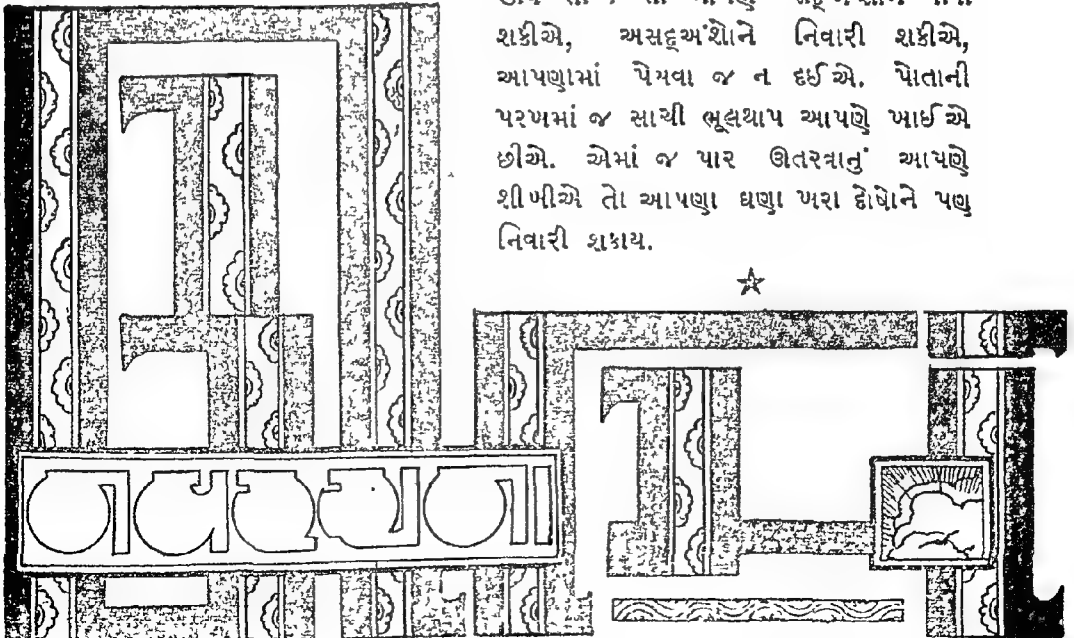 શકીએ, અસદ્અંશોને નિવારી શકીએ,
આપણામાં પેસવા જ ન દઈએ. પોતાની
પરખમાં જ સાચી ભૂલથાપ આપણે ખાઈએ
છીએ. એમાં જ પાર ઊતરવાનું આપણે
શીખીએ તો આપણા ઘણા ખરા દોષોને પણ
નિવારી શકાય.
નવરચના